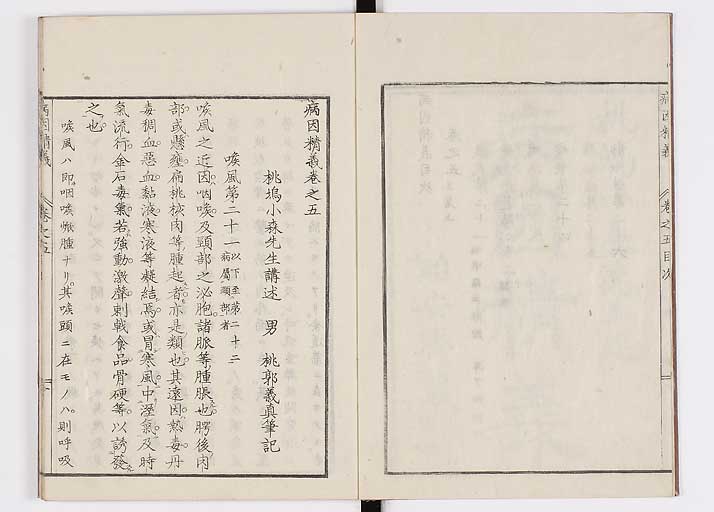 病因精義 卷之五目次
病因精義卷之五
桃塢小森先生講述 男 桃郭義真筆記
喉風第二十一以下至第二十二病屬頸部者
喉風之近因咽喉及頸部之泌胞諸脈等腫脹也腭後肉
部或懸壅扁桃核肉等腫起者亦是類也其遠因熱毒丹
毒稠血惡血黏液寒液等凝結焉或冒寒風中溼氣及時
氣流行金石毒氣若強動激聲刺戟食品骨硬等以誘發
之也
喉風ハ即咽喉焮腫ナリ其喉頭ニ在モノハ則呼吸
病因精義 卷之五